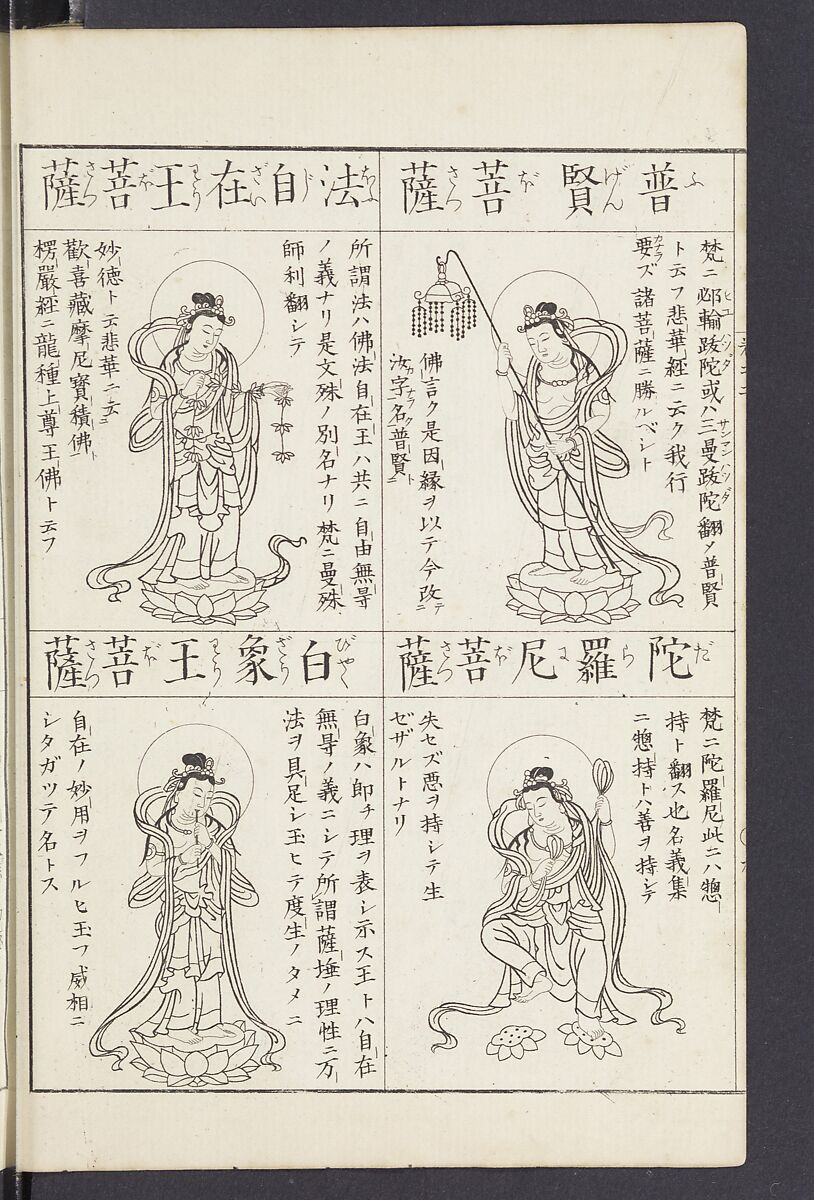 普賢菩薩
ふげんぼさつ
梵ニ邲輸跋陀或ハ三曼跋陀翻メ普賢
ト云フ悲華經ニ云ク我行
要ズ諸菩薩ニ勝ルベシト
佛言ク是因縁ヲ以テ今改テ
汝ガ字ヲ名ク普賢ト
法自在王菩薩
所謂法ハ佛法自在王ハ共ニ自由無㝵
ノ義ナリ是文殊ノ別名ナリ梵ニ曼殊
師利翻シテ
妙徳ト云悲華ニ云
歡喜藏摩尼寳積佛ト
楞嚴經ニ龍種上尊王佛ト云フ
陀羅尼菩薩
だらにぼさつ
梵ニ陀羅尼此ニハ惣
持ト翻ス也名義集
ニ惣持トハ善ヲ持シテ
失セズ悪ヲ持シテ生
ゼザルトナリ
白象王菩薩
びやくざうわうぼさつ
白象ハ即チ理ヲ表シ示ス王トハ自在
無㝵ノ義ニシテ所謂薩埵ノ理性ニ万
法ヲ具足シ玉ヒテ度生ノタメニ
自在ノ妙用ヲフルヒ玉フ威相ニ
シタガツテ名トス